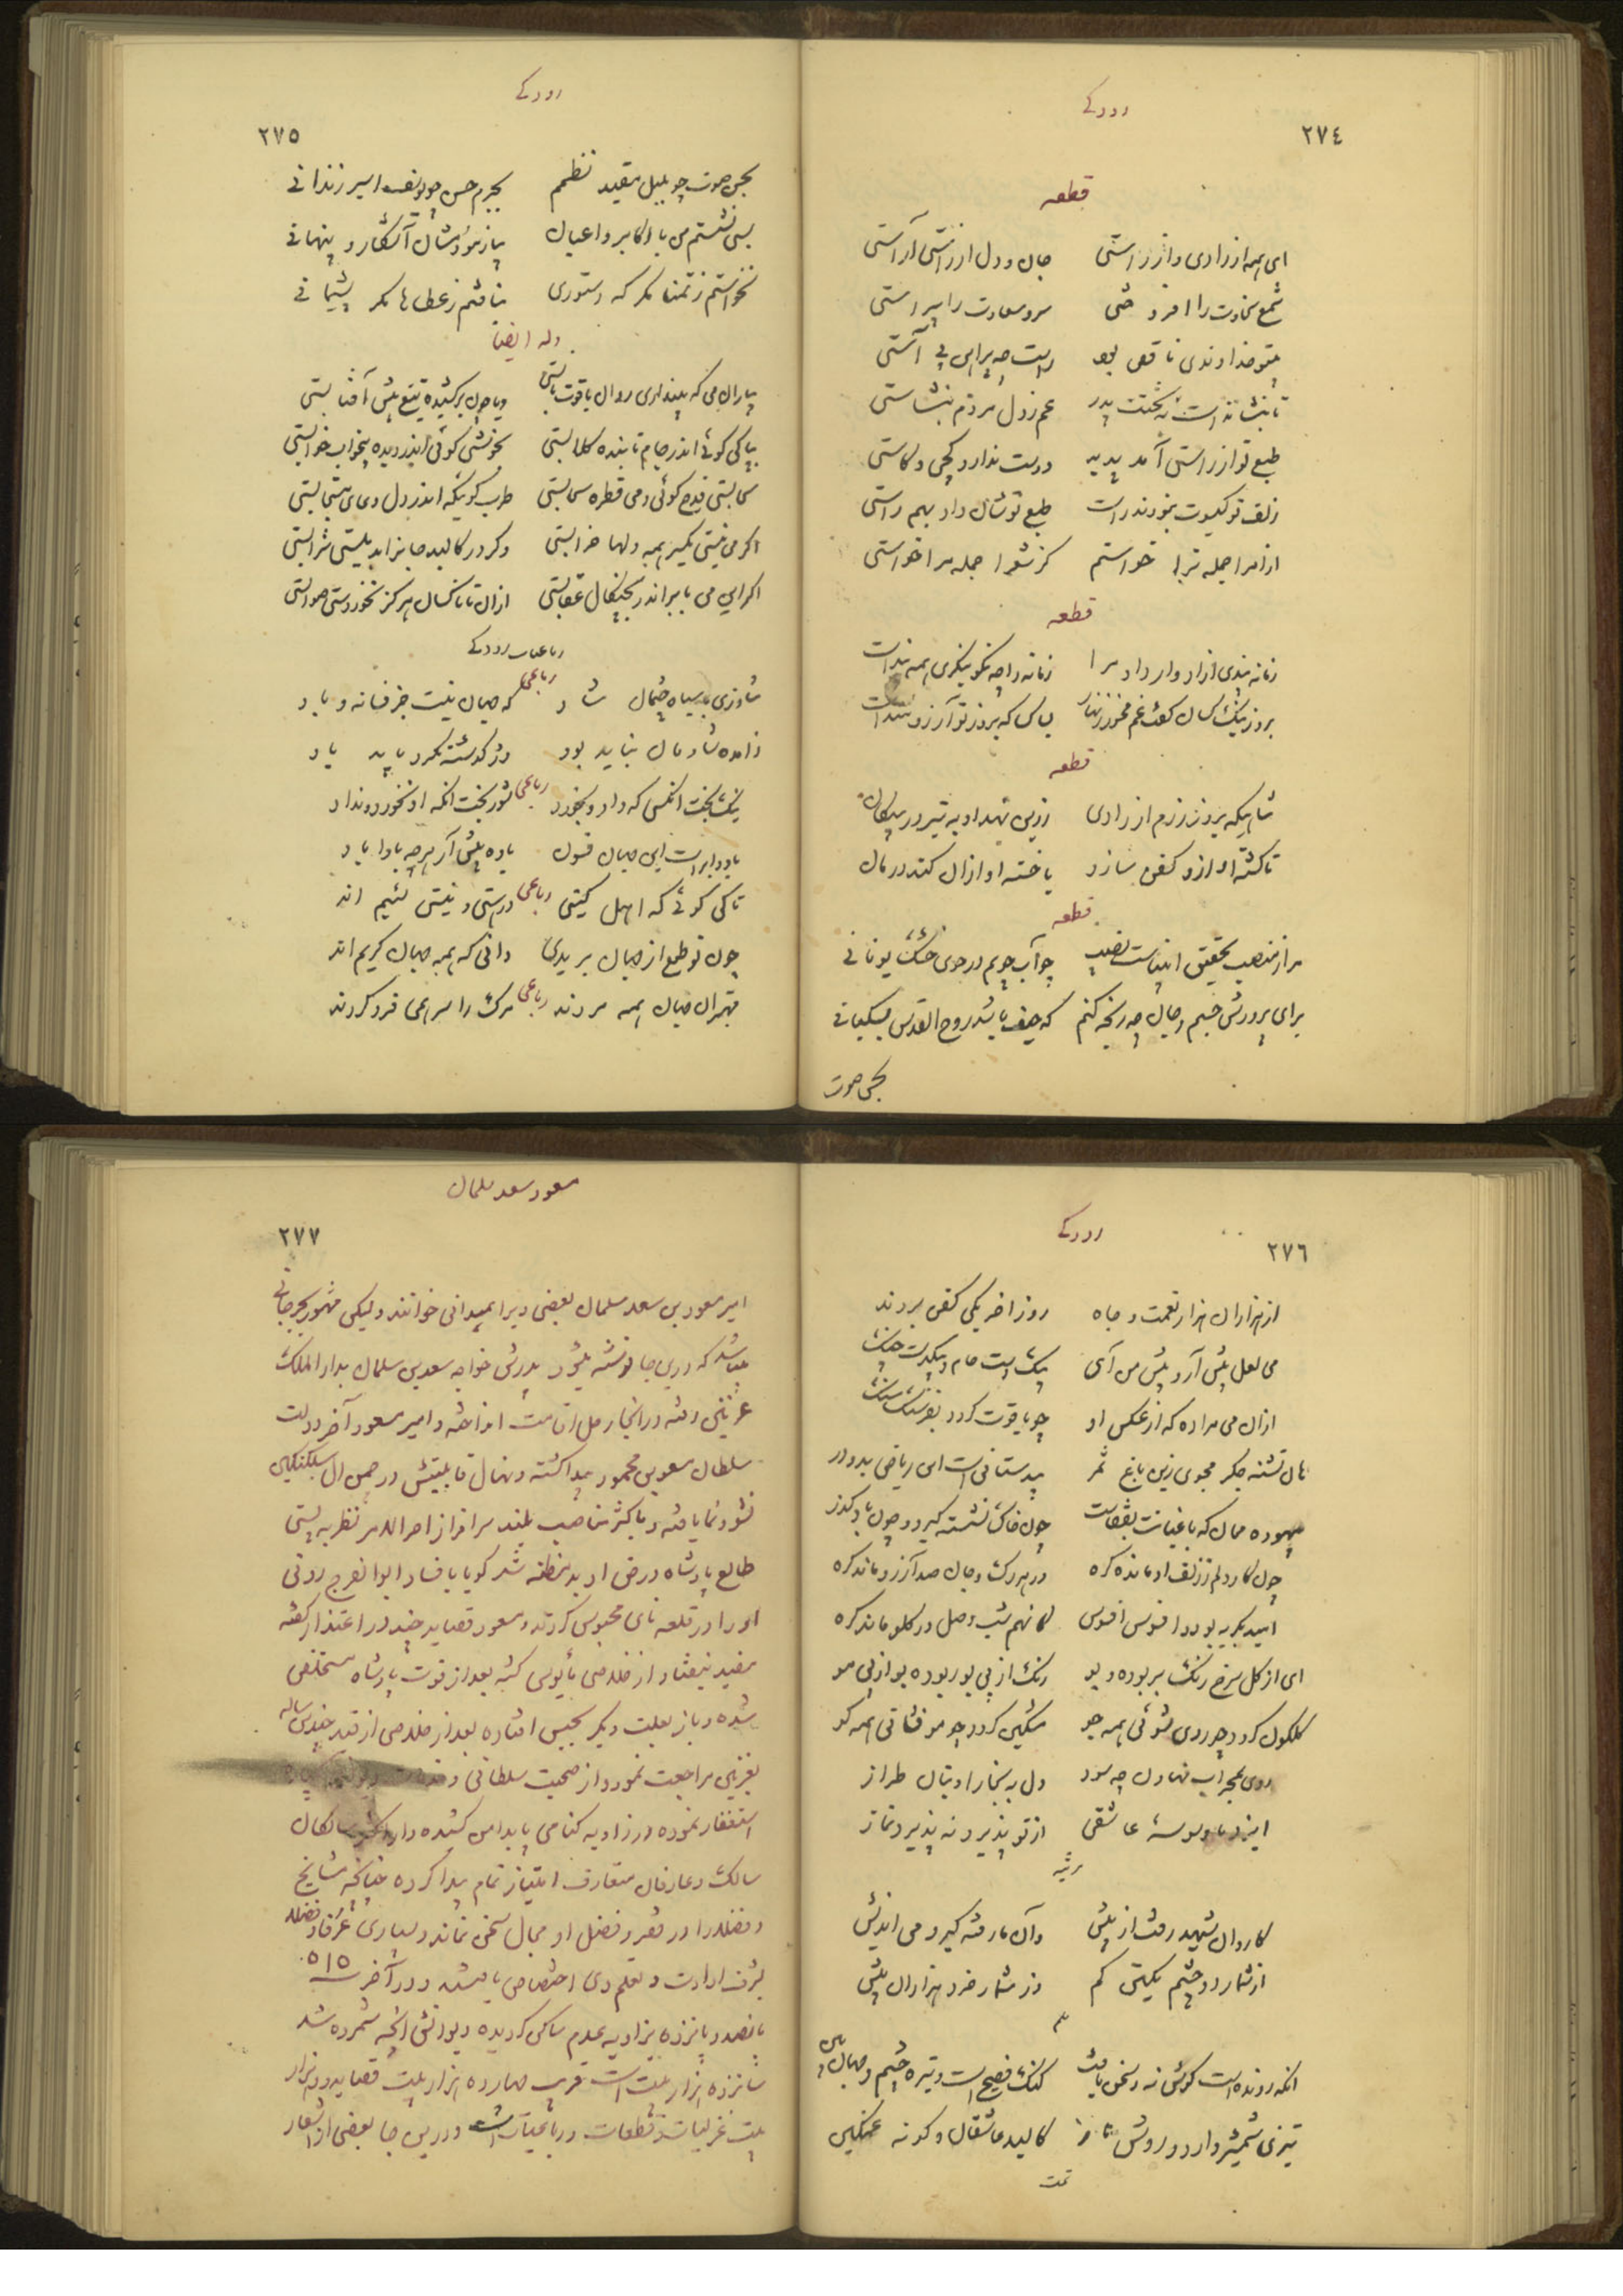 رودکی
٢٧٤
قطعه
ای همه از رادی و از راستی جان و دل از راستی آراستی
شمع سخاوت را افروختی سرو سعادت را پیراستی
خداوندی ناقص بود راست چه پیراهن بی آستی
تا بنشانده است به تخت پدر غم ز دل مردم بنشاستی
طبع تو از راستی آمد پدید دوست ندارد کجی و کاستی
زلف تو گیسوت نمودند راست طبع تو شان داد بهم راستی
ازامرا جمله ترا خواستم کز شعرا جمله مرا خواستی
قطعه
زمانه پندی ازادوار داد مرا زمانه را چه نکو بنگری همه پنداست
بروز نیک کسان گفت غم مخور زنهار بسا کسا که بروز تو آرزومنداست
قطعه
شاهیکه بروز رزم از رادی زرین نهد او به تیر در پیکان
تا کشته او ازو کفن سازد یا خسته او ازان کند درمان
قطعه
مرا ز منصب تحقیق انبیاست نصیب چه آب جویم در جوی خشک یونانی
برای پرورش جسم و جان چه رنجه کنم که حیف باشد روح القدس بسگبانی
بحسن صوت
رودکی
٢٧٥
بحسن صوت چو بلبل مقید نظمم بجرم حسن چو یوسف اسیر زندانی
بسی نشستم من با اکابر و اعیان بیازمودمشان آشکار و پنهانی
نخواستم ز تمنا مگر که دستوری نیافتم ز عطاها مگر پشیمانی
وله ایضا
بیاران می که پنداری روان یاقوت نابستی ویا چون برکشیده تیغ پیش آفتابستی
بپاکی گوئی اندر جام تابنده گلابستی بخوشی گوئی اندر دیده بیخواب خوابستی
سحابستی قدح گوئی و می قطره سحابستی طرب گوئیکه اندر دل دعای مستجابستی
اگر می نیستی یکسر همه دلها خرابستی وگر در کالبد جانرا بدیلستی شرابستی
اگر این می بابر اندر بچنگال عقابستی ازان تا ناکسان هرگز نخوردستی صوابستی
رباعیات رودکی
شاد زی با سیاه چشمان شاد رباعی که جهان نیست جز فسانه و باد
زامده شادمان نباید بود وز گذشته نکرد باید یاد
نیک بخت آنکسی که داد و بخورد رباعی شوربخت آنکه او نخورد و نداد
باد و ابر است این جهان فسوس باده پیش آر هرچه بادا باد
تا کی گوئی که اهل گیتی رباعی در هستی و نیستی لئیم اند
چون تو طمع از جهان بریدی دانی که همه جهان کریم اند
مهتران جهان همه مردند رباعی مرگ را سر همی فرو کردند
رودکی
٢٧٦
از هزاران هزار نعمت و جاه روز اخر یکی کفن بردند
می لعل پیش آر و پیش من آی بیک دست جام و بیکدست چنگ
ازان می مرا ده که از عکس او چو یاقوت گردد بفرسنگ سنگ
هان تشنه جگر مجوی زین باغ ثمر بیدستانی است این ریاض بدو در
بیهوده ممان که باغبانت بقفاست چون خاک نشسته گیر و چون باد گذر
چون کار دلم ز زلف او مانده گره در هر رگ و جان صد آرزو مانده گره
امید بگریه بود و افسوس افسوس کانهم شب وصل در گلو مانده گره
ای از گل سرخ رنگ بربوده و بو رنگ از پی رخ ربوده بو از پی مو
گلگون گردد چو روی شوئی همه جو مشکین گردد چو مو فشانی همه کو
روی بمحراب نهادن چه سود دل به بخارا و بتان طراز
ایزد با وسوسهٔ عاشقی از تو پذیرد نه پذیرد نماز
مرثیه
کاروان شهید رفت از پیش وآن ما رفته گیر و می اندیش
از شمار دو چشم یکتن کم وز شمار خرد هزاران بیش
انکه رونده است گوش نه و سخن یافت گنگ فصیح است و تیره چشم و جهان بین
تیزی شمشیر دارد و روش مار کالبد عاشقان و گونه غمگین
تمت
مسعود سعد سلمان
٢٧٧
امیر مسعود بن سعد سلمان بعضی ویرا همدانی خوانند ولیکن مشهور بجرجانی
میباشد که درین جا نوشته میشود پدرش خواجه سعد بن سلمان بدار الملک
غزنین رفته در انجا رحل اقامت انداخته و امیر مسعود آخر دولت
سلطان مسعود بن محمود پیدا گشته و نهال قابلیتش در چمن ال سبکتکین
نشو و نما یافته و باکثر مناصب بلند سرافراز اخر الامر نظر به پستی
طالع پادشاه در حق او بدمظنه شد گویا بافساد ابوالفرج رونی
او را در قلعه نای محبوس کردند و مسعود قصاید چند در اعتذار گفته
مفید نیفتاد از خلاصی مأیوس گشته بعد از فوت پادشاه مستخلص
شده و باز بعلت دیگر بحبس افتاده بعد از خلاصی از قید چندین ساله
بغزنین مراجعت نمود و از صحبت سلطانی و
استغفار نموده در زاویه گمنامی پا بدامن کشیده و از سالکان
سالک و عارفان متعارف امتیاز تمام پیدا کرده چنانچه مشایخ
و فضلا را در فقر و فضل او مجال سخن نماند و بسیاری عرفا و فضلا
بشرف ارادت و تعلم وی اختصاص یافتند و در آخر سنه ٥١٥
پانصد و پانزده بزاویه عدم ساکن گردیده دیوانش انچه شمرده شد
شانزده هزار بیت است قریب چهارده هزار بیت قصاید و دو هزار
بیت غزلیات و قطعات و رباعیات است و درین جا بعضی از اشعار